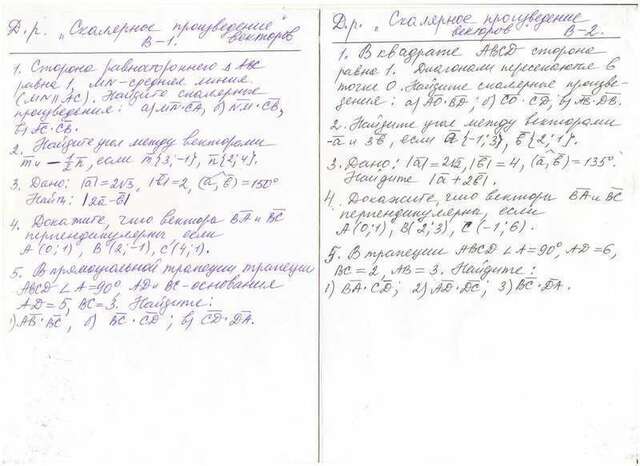 Д.р. "Скалярное произведение
векторов
В-1.
1. Сторона равностороннего Δ ABC
равна 1, MN-средняя линия
(MN||AC). Найдите скалярные
произведения: а) MN·CA, б) NM·CB,
в) AC·CB.
2. Найдите угол между векторами
m и -1/2 n, если m{3;-1}, n{2;4}.
3. Дано: |a|=2√3, |b|=2, (a,b)=150°
Найти: |2a-b|
4. Докажите, что вектора BA и BC
перпендикулярны если
A(0;1), B(2;-1), C(4;1).
5. В прямоугольной трапеции трапеции
ABCD ∠A=90° AD и BC-основания
AD=5, BC=3. Найдите:
1) AB·BC, б) BC·CD; в) CD·DA.
Д.р. "Скалярное произведение
векторов В-2.
1. В квадрате ABCD сторона
равна 1. Диагонали пересекаются в
точке O. Найдите скалярные произве-
дение: а) AO·BD, б) CO·CD, в) AB·DB.
2. Найдите угол между векторами
-a и 3b, если a{-1;3}, b{2;1}.
3. Дано: |a|=2√2, |b|=4, (a,b)=135°
Найдите |a+2b|.
4. Докажите, что вектора BA и BC
перпендикулярны, если
A(0;1), B(2;3), C(-1;6).
5. В трапеции ABCD ∠A=90°, AD=6,
BC=2, AB=3. Найдите:
1) BA·CD; 2) AD·DC; 3) BC·DA.